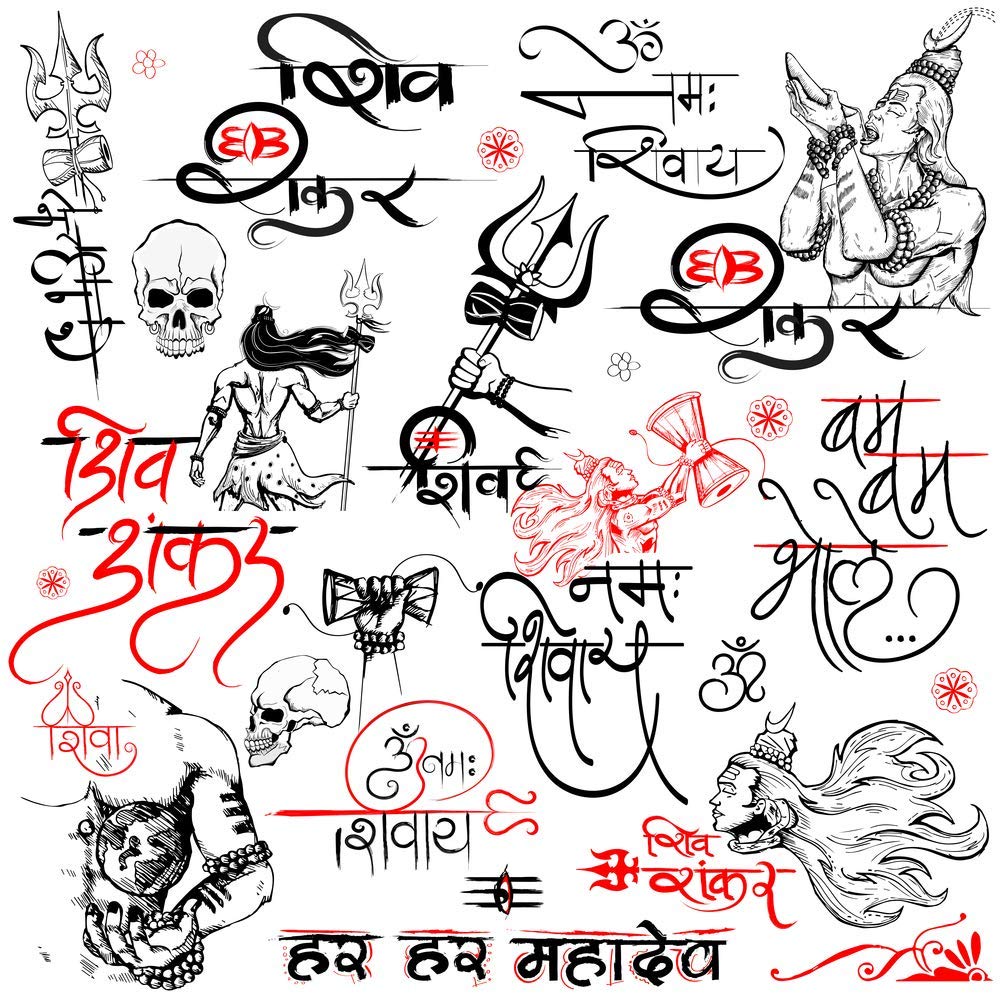 शिव
शंकर
ॐ
नमः
शिवाय
शंकर
शिव
शंकर
बम
बम
भोले...
नमः
शिवाय
ॐ
शिवा
ॐ नमः
शिवाय
शिव
शंकर
हर हर महादेव